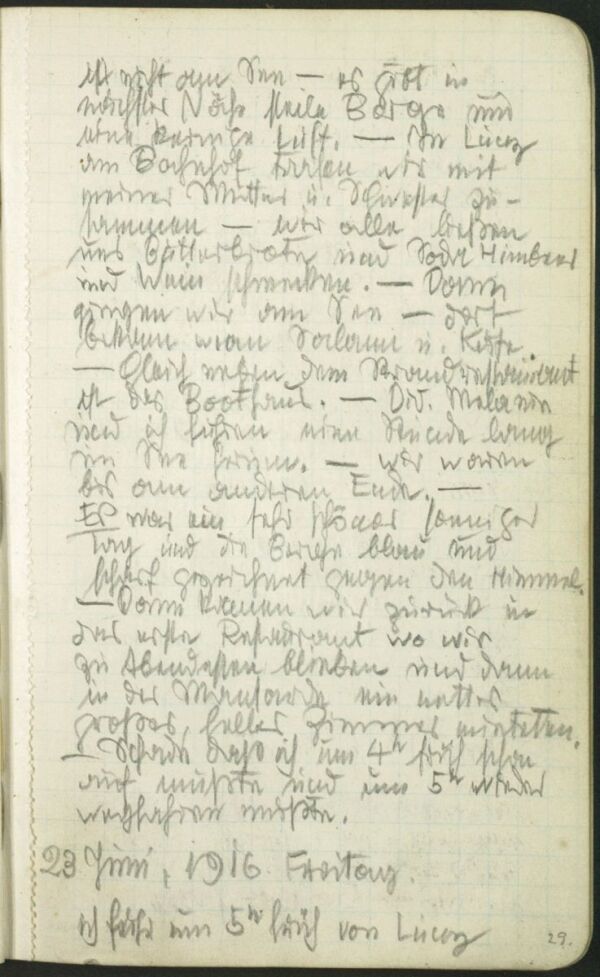 ist nicht am See — es gibt in
nächster Nähe steile Berge und
eine Luft. — In Linz
am Bahnhof trafen wir mit
meiner Mutter u. Schwester zu-
sammen — wir alle ließen
uns Butterbrote und Soda Himbeer
und Wein schmecken. — Dann
gingen wir am See — dort
bekam man Salami u. Käse
— Gleich neben dem Strandrestaurant
ist das Boothaus. — Did. Melanie
und ich fuhren eine Stunde lang
im See herum. — wir waren
bis am anderen Ende. —
Es war ein sehr schöner sonniger
Tag und die Berge blau und
scharf gezeichnet gegen den Himmel.
— Dann kamen wir zurück in
das erste Restaurant wo wir
zu Abendessen blieben und dann
in der Mansarde ein nettes
großes, helles Zimmer mieteten.
— Schade daß ich um 4h früh schon
auf mußte und um 5h wieder
wegfahren mußte.
23 Juni, 1916. Freitag.
ich fuhr um 5h früh von
29.